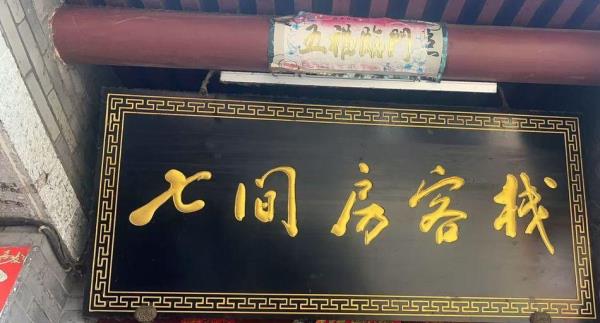 五福临門
七间房客栈